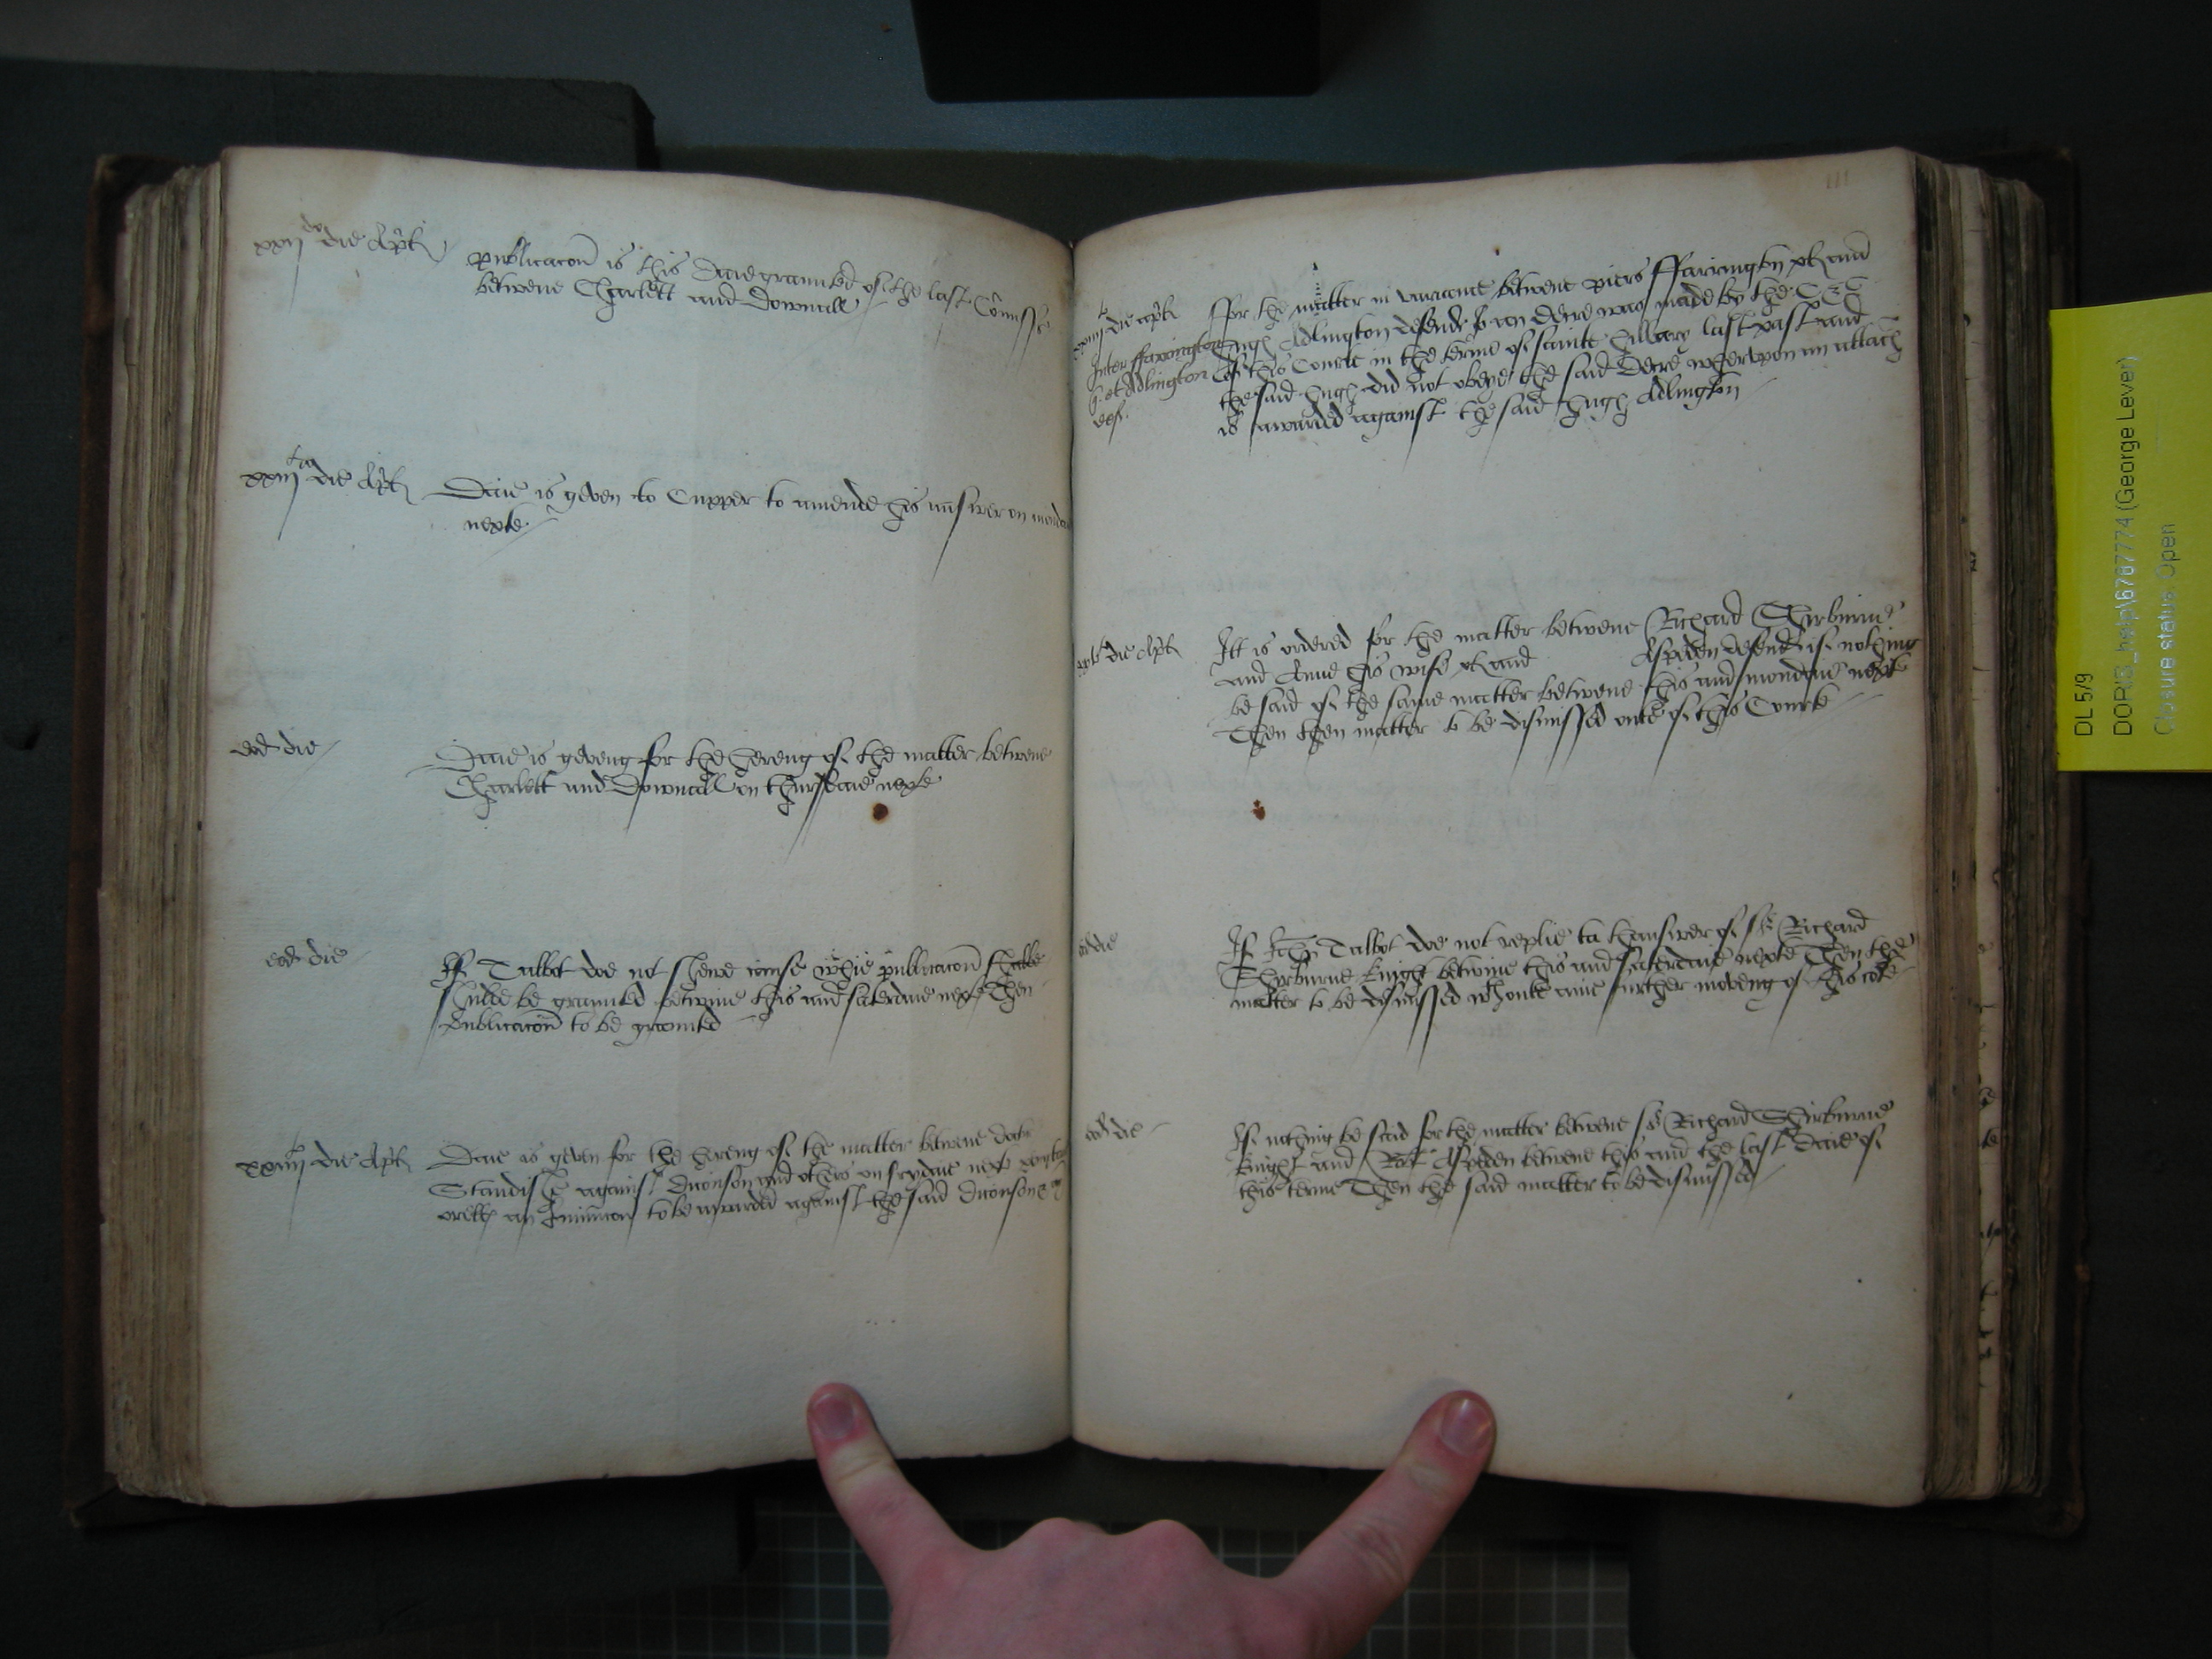 xxij do die Aprl
Publicacon is this daie graunted of the last Comiss
betwene Charlett and Downall
xxiij cio die Aprl
Daie is geven to Cupper to amende his answer on monda
nexte
eod die
Daie is geveng for the hereng of the matter betwene
Charlett and Downall on thursdaie nexte
eod die
If Talbot doe not shewe cause whie publicacon shalbe
shulde be graunted betwine this and saterdaie nexte Then
publicacon to be graunted
xxiiij to die Aprl
Daie is geven for the hereng of the matter betwene
Standishe against Duonson and others on frydaie next
orells an Iniunccon to be awarded against the said Duonson
111
xxiiij to die Aprl
Inter ffarrington
q et Adlington
def.
ffor the matter in variaunce betwene Piers ffarrington pl and
Hugh Adlington defend a decre was made by the
of this Courte in the terme of saincte Hillary last past and
the said Hugh did not obeye the said Decre wherupon an attach
is awarded against the said Hugh Adlington
die Aprl
Itt is ordered for the matter betwene Richard Shirburne
and Anne his wife pl and Aspeden defend if nothing
be said of the same matter betwene this and mondaie nexte
Then then matter to be dismissed oute of this Courte
eod die
If John Talbot doe not replie to thanswer of sr Richard
Shirburne knight betwine this and saterdaie nexte Then the
matter to be dismissed wthoute anie further moveng of this
eod die
If nothing be said for the matter betwene sr Richard Shirburne
knight and Robt Aspeden betwene this and the last daie of
this terme Then the said matter to be dismissed
DL 5/9
DORIS_help\6767774 (George Lever)
Closure status: Open